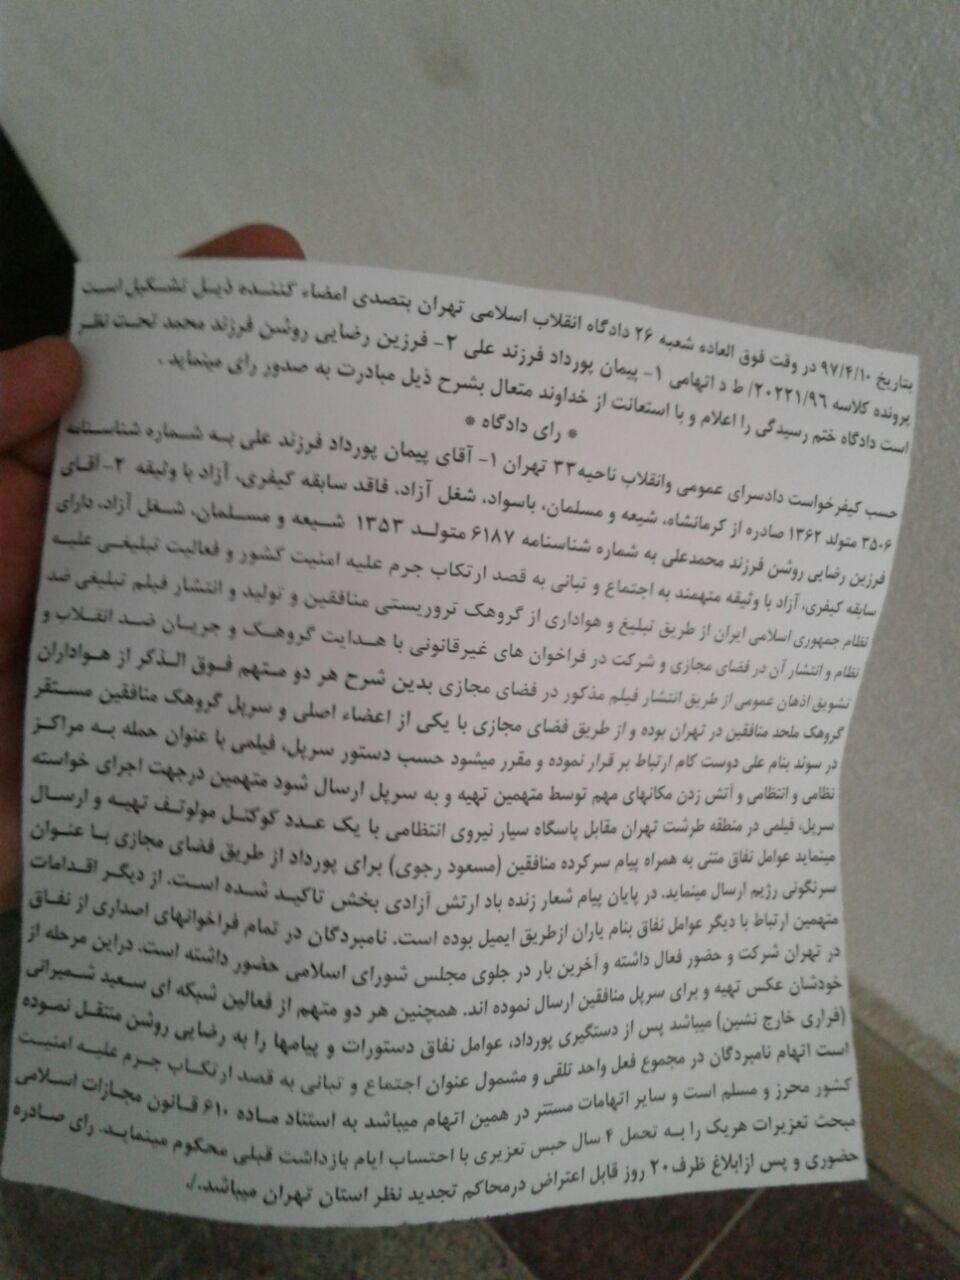 بتاریخ ۹۷/۴/۱۰ در وقت فوق العاده شعبه ۲۶ دادگاه انقلاب اسلامی تهران بتصدی امضاء کننده ذیل تشکیل است
پرونده کلاسه ۲۰۲۲۱/۹۶/ ط د اتهامی ۱- پیمان پورداد فرزند علی ۲- فرزین رضایی روشن فرزند محمد تحت نظر
است دادگاه ختم رسیدگی را اعلام و با استعانت از خداوند متعال بشرح ذیل مبادرت به صدور رای مینماید .
* رای دادگاه *
حسب کیفرخواست دادسرای عمومی وانقلاب ناحیه۳۳ تهران ۱- آقای پیمان پورداد فرزند علی به شماره شناسنامه
۳۵۰۶ متولد ۱۳۶۲ صادره از کرمانشاه، شیعه و مسلمان، باسواد، شغل آزاد، فاقد سابقه کیفری، آزاد با وثیقه ۲-آقای
فرزین رضایی روشن فرزند محمدعلی به شماره شناسنامه ۶۱۸۷ متولد ۱۳۵۳ شیعه و مسلمان، شغل آزاد، دارای
سابقه کیفری، آزاد با وثیقه متهمند به اجتماع و تبانی به قصد ارتکاب جرم علیه امنیت کشور و فعالیت تبلیغی علیه
نظام جمهوری اسلامی ایران از طریق تبلیغ و هواداری از گروهک تروریستی منافقین و تولید و انتشار فیلم تبلیغی ضد
نظام و انتشار آن در فضای مجازی و شرکت در فراخوان های غیرقانونی با هدایت گروهک و جریان ضد انقلاب و
تشویق اذهان عمومی از طریق انتشار فیلم مذکور در فضای مجازی بدین شرح هر دو متهم فوق الذکر از هواداران
گروهک ملحد منافقین در تهران بوده و از طریق فضای مجازی با یکی از اعضاء اصلی و سرپل گروهک منافقین مستقر
در سوئد بنام علی دوست کام ارتباط بر قرار نموده و مقرر میشود حسب دستور سرپل، فیلمی با عنوان حمله به مراکز
نظامی و انتظامی و آتش زدن مکانهای مهم توسط متهمین تهیه و به سرپل ارسال شود متهمین درجهت اجرای خواسته
سرپل، فیلمی در منطقه طرشت تهران مقابل پاسگاه سیار نیروی انتظامی با یک عدد کوکتل مولوتف تهیه و ارسال
مینماید عوامل نفاق متنی به همراه پیام سرکرده منافقین (مسعود رجوی) برای پورداد از طریق فضای مجازی با عنوان
سرنگونی رژیم ارسال مینماید. در پایان پیام شعار زنده باد ارتش آزادی بخش تاکید شده است. از دیگر اقدامات
متهمین ارتباط با دیگر عوامل نفاق بنام یاران ازطریق ایمیل بوده است. نامبردگان در تمام فراخوانهای اصداری از نفاق
در تهران شرکت و حضور فعال داشته و آخرین بار در جلوی مجلس شورای اسلامی حضور داشته است. دراین مرحله از
خودشان عکس تهیه و برای سرپل منافقین ارسال نموده اند. همچنین هر دو متهم از فعالین شبکه ای سعید شمیرانی
(فراری خارج نشین) میباشد پس از دستگیری پورداد، عوامل نفاق دستورات و پیامها را به رضایی روشن منتقل نموده
است اتهام نامبردگان در مجموع فعل واحد تلقی و مشمول عنوان اجتماع و تبانی به قصد ارتکاب جرم علیه امنیت
کشور محرز و مسلم است و سایر اتهامات مستتر در همین اتهام میباشد به استناد ماده ۶۱۰ قانون مجازات اسلامی
مبحث تعزیرات هریک را به تحمل ۴ سال حبس تعزیری با احتساب ایام بازداشت قبلی محکوم مینماید. رای صادره
حضوری و پس ازابلاغ ظرف۲۰ روز قابل اعتراض درمحاکم تجدید نظر استان تهران میباشد./.